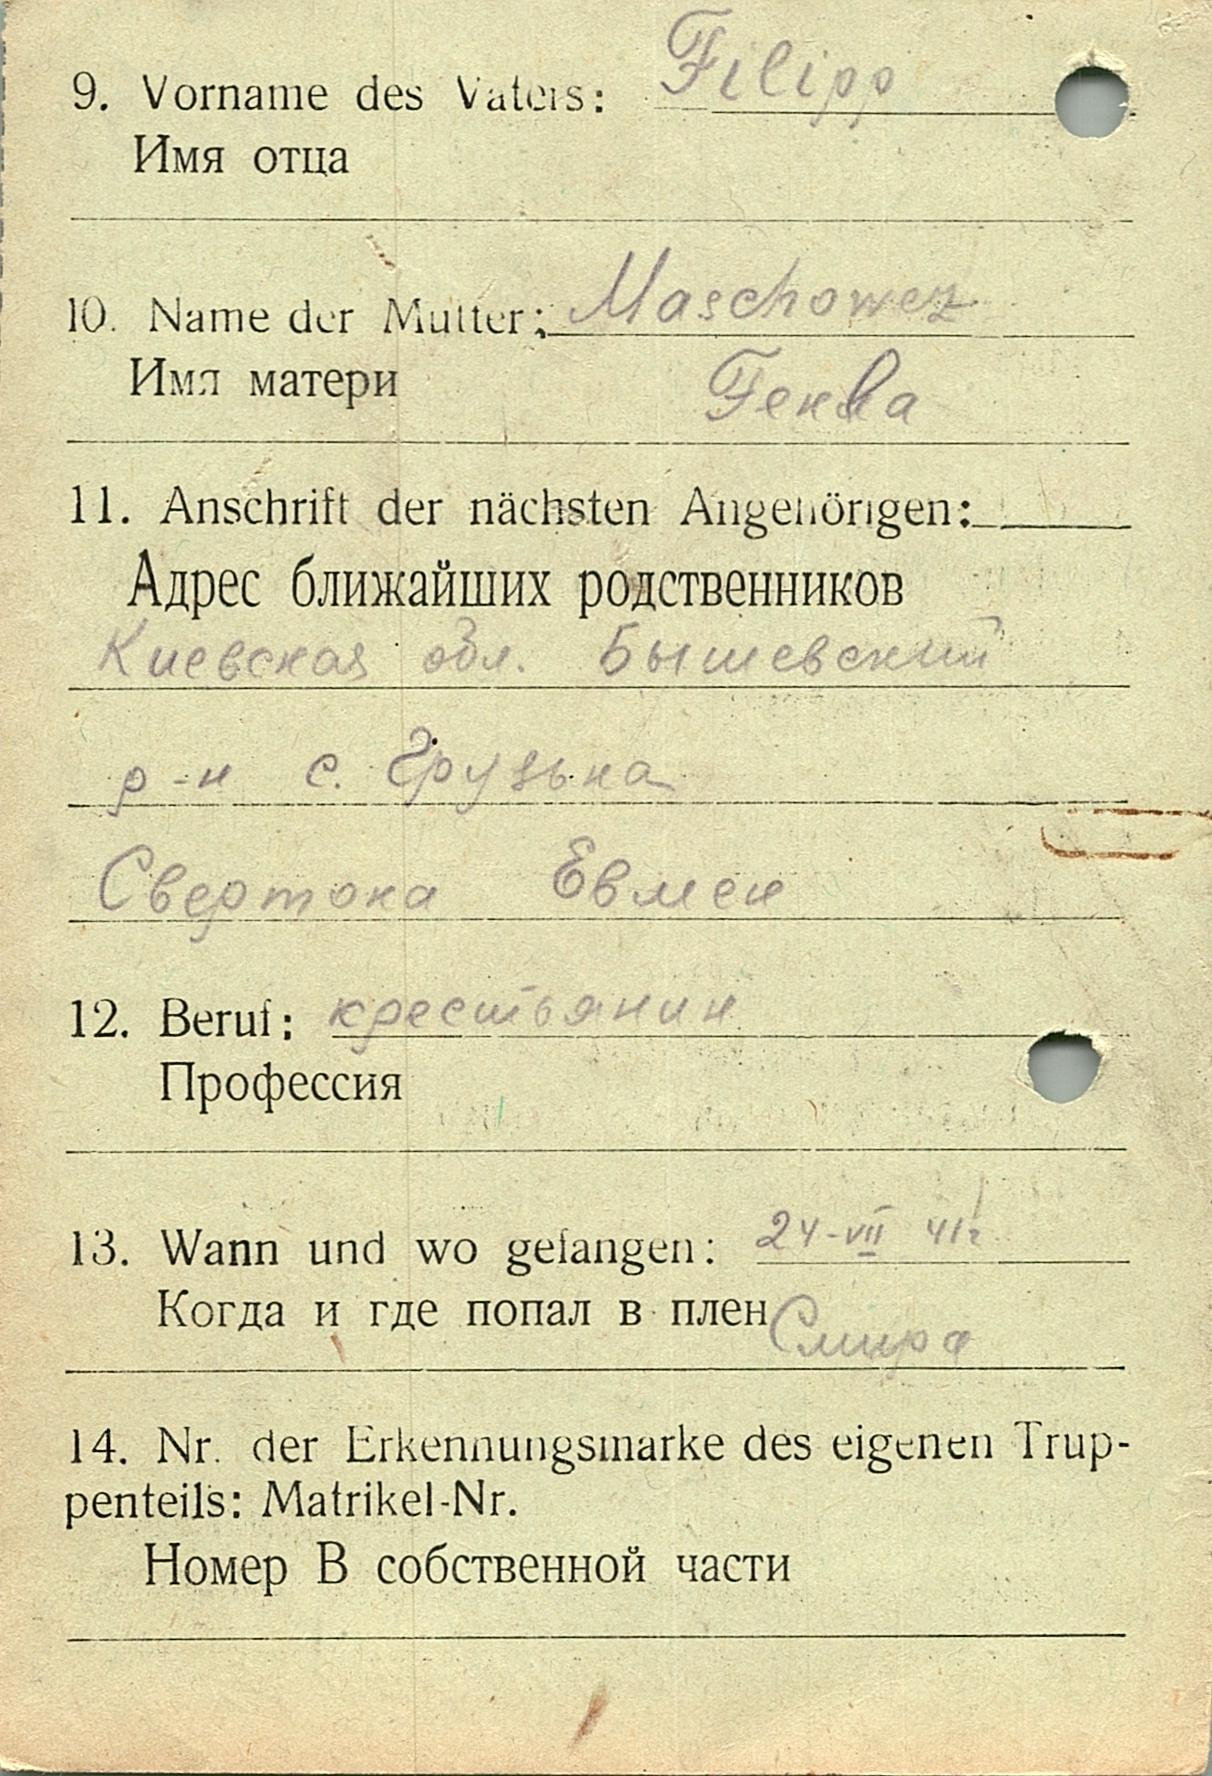 9. Vorname des Vaters: Filipp
Имя отца
10. Name der Mutter: Maschowez
Имя матери Fекла
11. Anschrift der nächsten Angehörigen:
Адрес ближайших родственников
Киевская обл. Бышевский
р-н с. Грузька
Свертока Евмен
12. Beruf: крестьянин
Профессия
13. Wann und wo gefangen: 24-VII 41г
Когда и где попал в плен
14. Nr. der Erkennungsmarke des eigenen Trup-
penteils: Matrikel-Nr.
Номер В собственной части